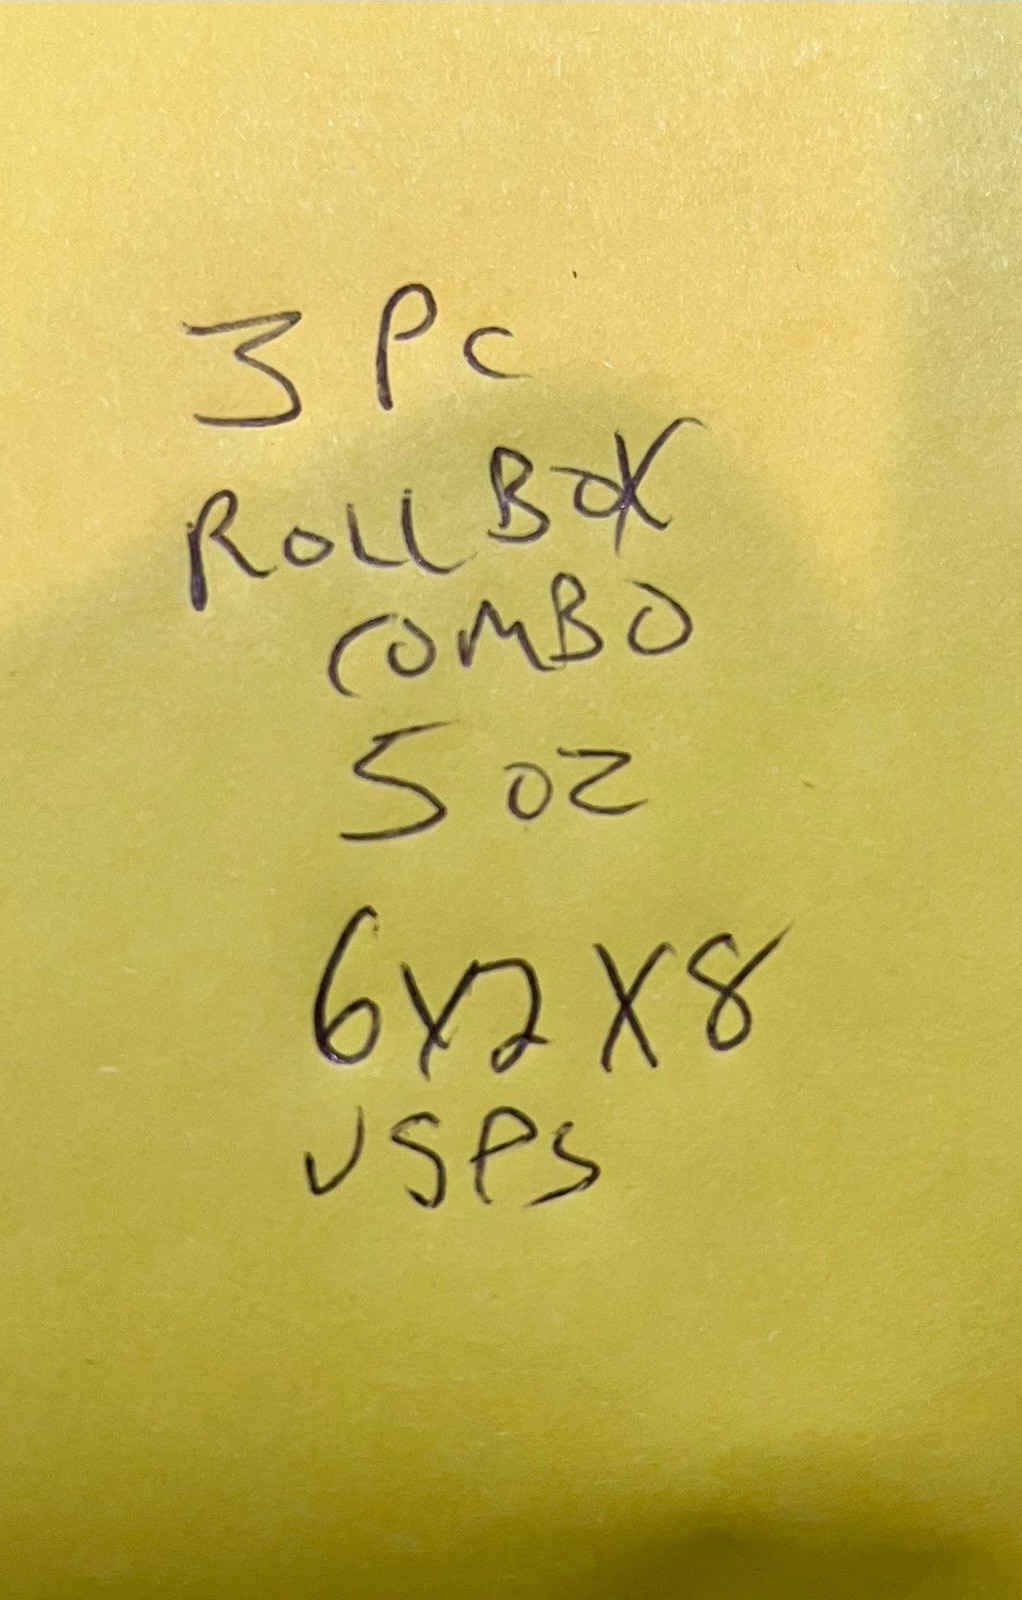 3 Pc
ROLL BOX
COMBO
5 oz
6x2x8
USPS